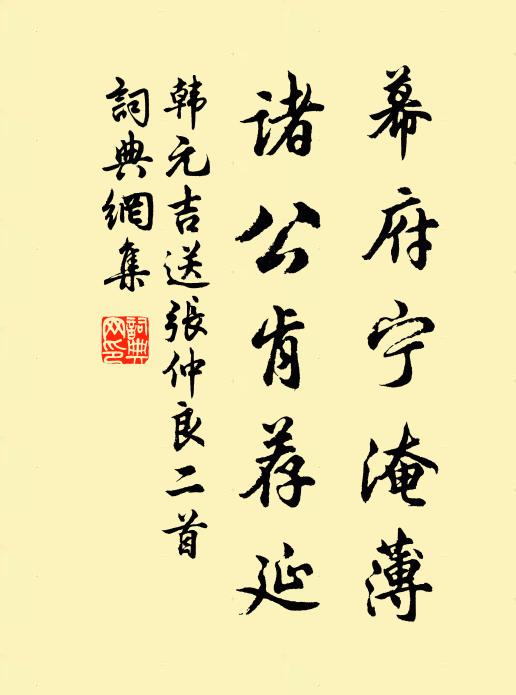 幕府宁淹薄
诸公肯荐延
韩元吉送張仲良二首
詞典網集
詞典
网印